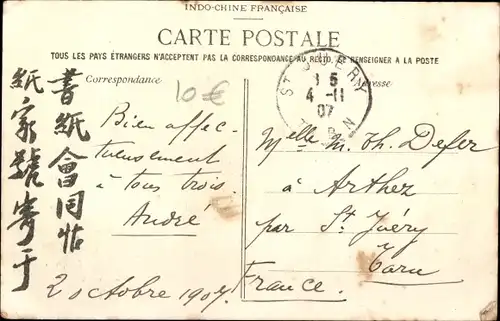 INDO-CHINE FRANÇAISE
CARTE POSTALE
TOUS LES PAYS ÉTRANGERS N'ACCEPTENT PAS LA CORRESPONDANCE AU RECTO, SE RENSEIGNER A LA POSTE
Correspondance
Adresse
10 €
ST JUERY
8 5
4 -11
07
TARN
書紙會同帖
紙家號寄于
Bien affec-
tueusement
à tous trois.
André
2 octobre 1907.
Melle M. Th. Defer
à Arthez
par St Juéry
Tarn
France.